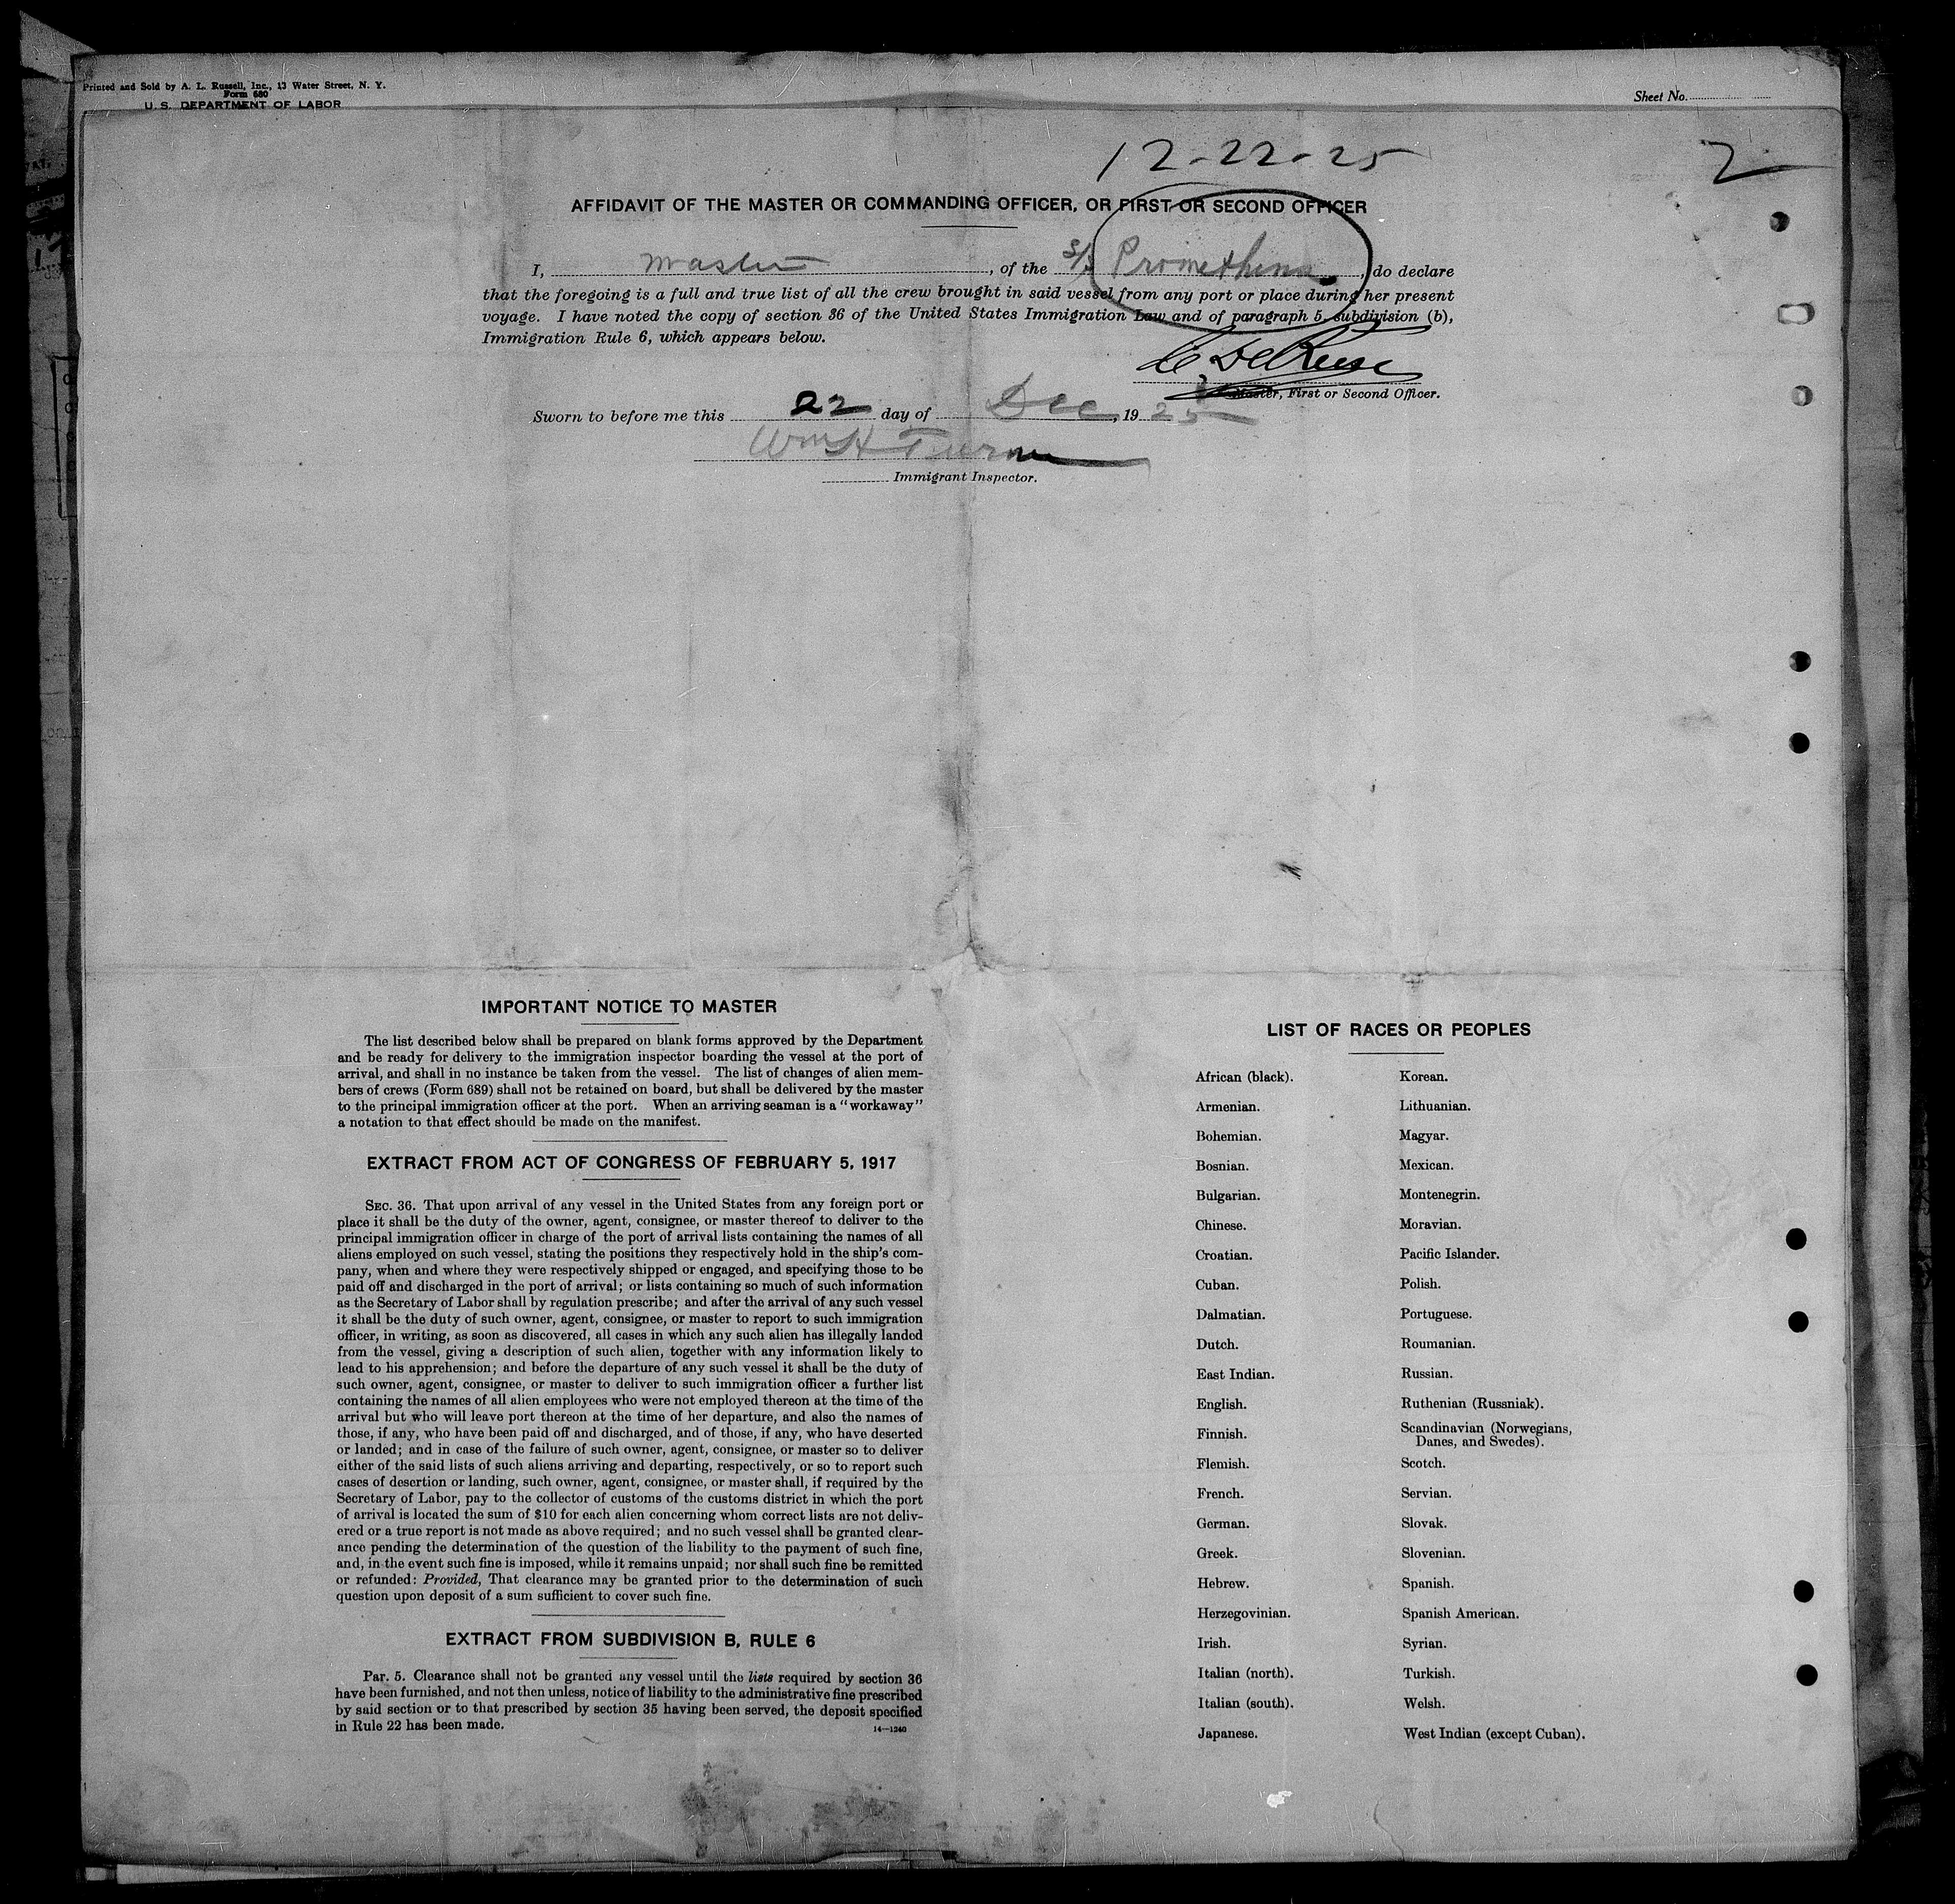 Printed and Sold by A. L. Russell, Inc., 13 Water Street, N. Y.
Form 680
U. S. DEPARTMENT OF LABOR
Sheet No.
12-22-25
2
AFFIDAVIT OF THE MASTER OR COMMANDING OFFICER, OR FIRST OR SECOND OFFICER
I, master, of the S/S , do declare
that the foregoing is a full and true list of all the crew brought in said vessel from any port or place during her present
voyage. I have noted the copy of section 36 of the United States Immigration Law and of paragraph 5, subdivision (b),
Immigration Rule 6, which appears below.
Master, First or Second Officer.
Sworn to before me this 22 day of Dec, 1925
Wm H
Immigrant Inspector.
IMPORTANT NOTICE TO MASTER
The list described below shall be prepared on blank forms approved by the Department
and be ready for delivery to the immigration inspector boarding the vessel at the port of
arrival, and shall in no instance be taken from the vessel. The list of changes of alien mem-
bers of crews (Form 689) shall not be retained on board, but shall be delivered by the master
to the principal immigration officer at the port. When an arriving seaman is a "workaway"
a notation to that effect should be made on the manifest.
EXTRACT FROM ACT OF CONGRESS OF FEBRUARY 5, 1917
SEC. 36. That upon arrival of any vessel in the United States from any foreign port or
place it shall be the duty of the owner, agent, consignee, or master thereof to deliver to the
principal immigration officer in charge of the port of arrival lists containing the names of all
aliens employed on such vessel, stating the positions they respectively hold in the ship's com-
pany, when and where they were respectively shipped or engaged, and specifying those to be
paid off and discharged in the port of arrival; or lists containing so much of such information
as the Secretary of Labor shall by regulation prescribe; and after the arrival of any such vessel
it shall be the duty of such owner, agent, consignee, or master to report to such immigration
officer, in writing, as soon as discovered, all cases in which any such alien has illegally landed
from the vessel, giving a description of such alien, together with any information likely to
lead to his apprehension; and before the departure of any such vessel it shall be the duty of
such owner, agent, consignee, or master to deliver to such immigration officer a further list
containing the names of all alien employees who were not employed thereon at the time of the
arrival but who will leave port thereon at the time of her departure, and also the names of
those, if any, who have been paid off and discharged, and of those, if any, who have deserted
or landed; and in case of the failure of such owner, agent, consignee, or master so to deliver
either of the said lists of such aliens arriving and departing, respectively, or so to report such
cases of desertion or landing, such owner, agent, consignee, or master shall, if required by the
Secretary of Labor, pay to the collector of customs of the customs district in which the port
of arrival is located the sum of $10 for each alien concerning whom correct lists are not deliv-
ered or a true report is not made as above required; and no such vessel shall be granted clear-
ance pending the determination of the question of the liability to the payment of such fine,
and, in the event such fine is imposed, while it remains unpaid; nor shall such fine be remitted
or refunded: Provided, That clearance may be granted prior to the determination of such
question upon deposit of a sum sufficient to cover such fine.
EXTRACT FROM SUBDIVISION B, RULE 6
Par. 5. Clearance shall not be granted any vessel until the lists required by section 36
have been furnished, and not then unless, notice of liability to the administrative fine prescribed
by said section or to that prescribed by section 35 having been served, the deposit specified
in Rule 22 has been made.
14—1240
LIST OF RACES OR PEOPLES
African (black).
Armenian.
Bohemian.
Bosnian.
Bulgarian.
Chinese.
Croatian.
Cuban.
Dalmatian.
Dutch.
East Indian.
English.
Finnish.
Flemish.
French.
German.
Greek.
Hebrew.
Herzegovinian.
Irish.
Italian (north).
Italian (south).
Japanese.
Korean.
Lithuanian.
Magyar.
Mexican.
Montenegrin.
Moravian.
Pacific Islander.
Polish.
Portuguese.
Roumanian.
Russian.
Ruthenian (Russniak).
Scandinavian (Norwegians,
Danes, and Swedes).
Scotch.
Servian.
Slovak.
Slovenian.
Spanish.
Spanish American.
Syrian.
Turkish.
Welsh.
West Indian (except Cuban).